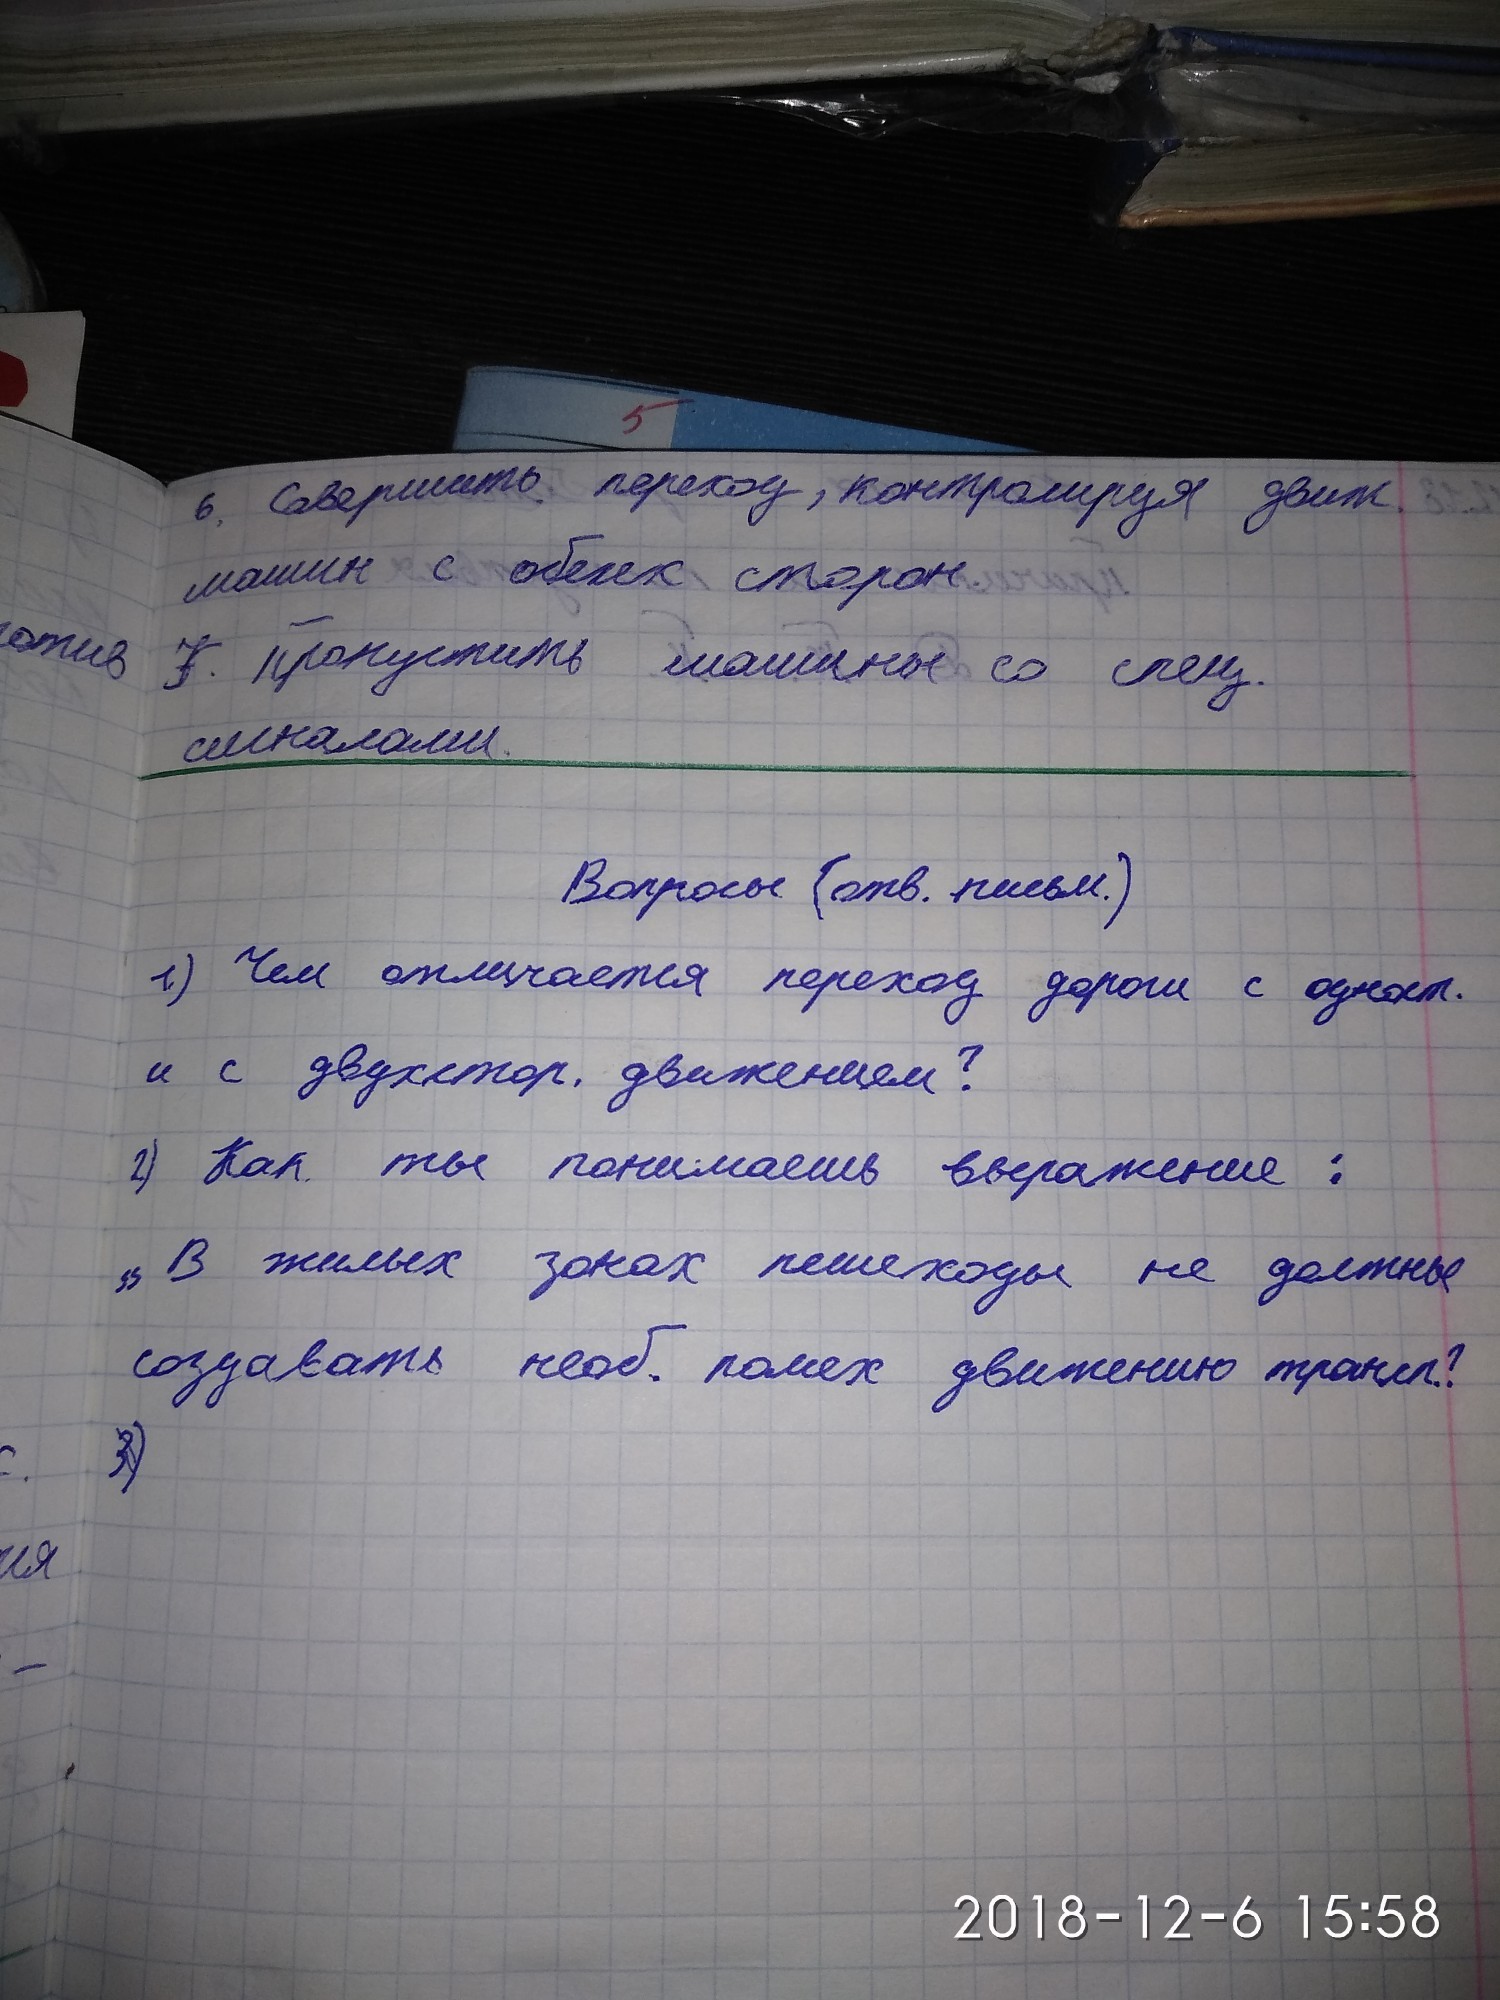 5
6. Совершить переход, контролируя движ.
машин с обеих сторон.
7. Пропустить машины со спец.
сигналами.
Вопросы (отв. письм.)
1) Чем отличается переход дороги с одност.
и с двухстор. движением?
2) Как ты понимаешь выражение:
„В жилых зонах пешеходы не должны
создавать необ. помех движению трансп.?
3)
2018-12-6 15:58